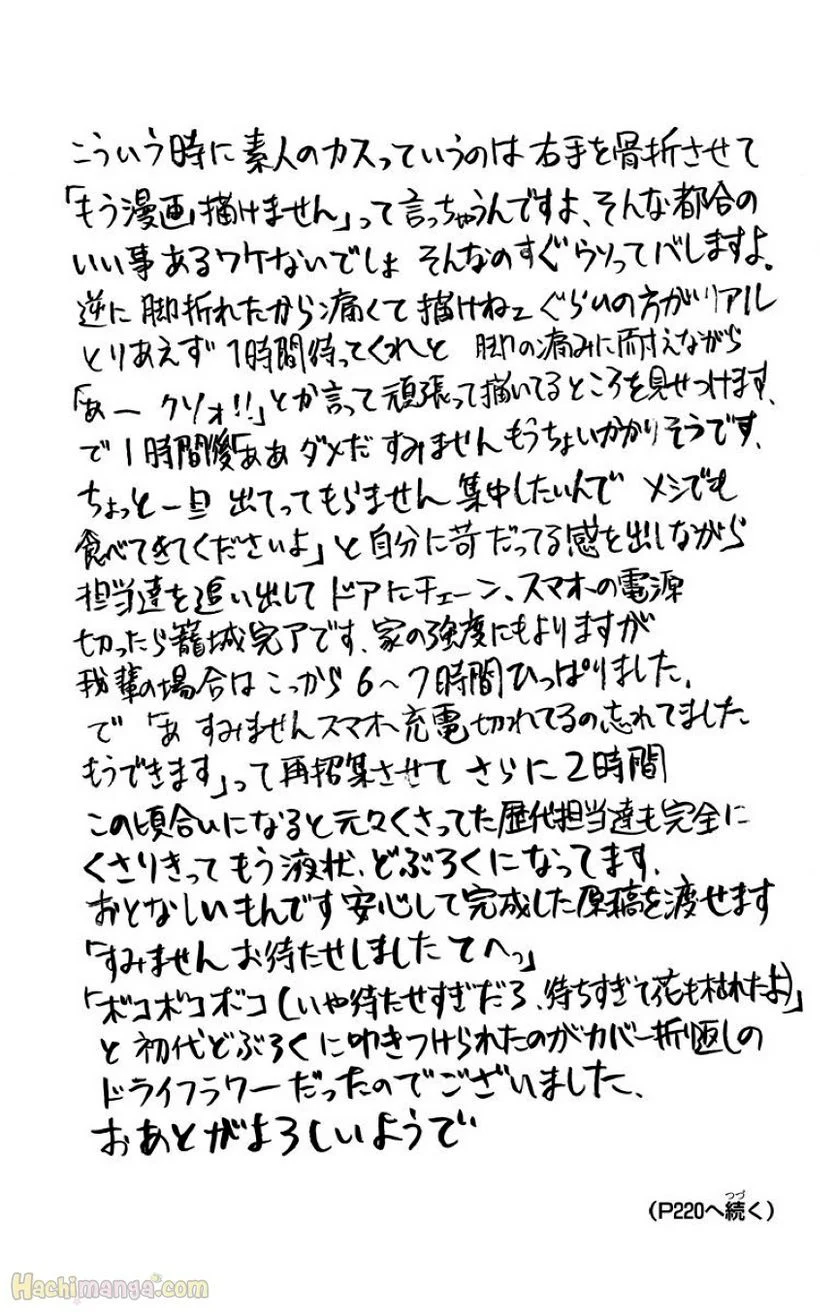 こういう時に素人のカスっていうのは右手を骨折させて
「もう漫画描けません」って言っちゃうんですよ、そんな都合の
いい事あるワケないでしょ そんなのすぐウソってバレますよ。
逆に脚折れたから痛くて描けねェぐらいの方がリアル
とりあえず1時間待ってくれと 脚の痛みに耐えながら
「あークソォ!!」とか言って頑張って描いてるところを見せつけます、
で1時間後「ああダメだ すみませんもうちょいかかりそうです、
ちょっと一旦出てってもらません 集中したいんで メシでも
食べてきてくださいよ」と自分に苛だってる感を出しながら
担当達を追い出してドアにチェーン、スマホの電源
切ったら籠城完了です、家の強度にもよりますが
我輩の場合はこっから6〜7時間ひっぱりました、
で「あ すみませんスマホ充電切れてるの忘れてました
もうできます」って再招集させて さらに2時間
この頃合いになると元々くさってた歴代担当達も完全に
くさりきってもう液状、どぶろくになってます、
おとなしいもんです安心して完成した原稿を渡せます
「すみません お待たせしました てへっ」
「ボコボコボコ(いや待たせすぎだろ、待ちすぎて花も枯れたよ)」
と初代どぶろくに叩きつけられたのがカバー折り返しの
ドライフラワーだったのでございました、
おあとがよろしいようで
(P220へ続く)
つづ
Hachimanga.com